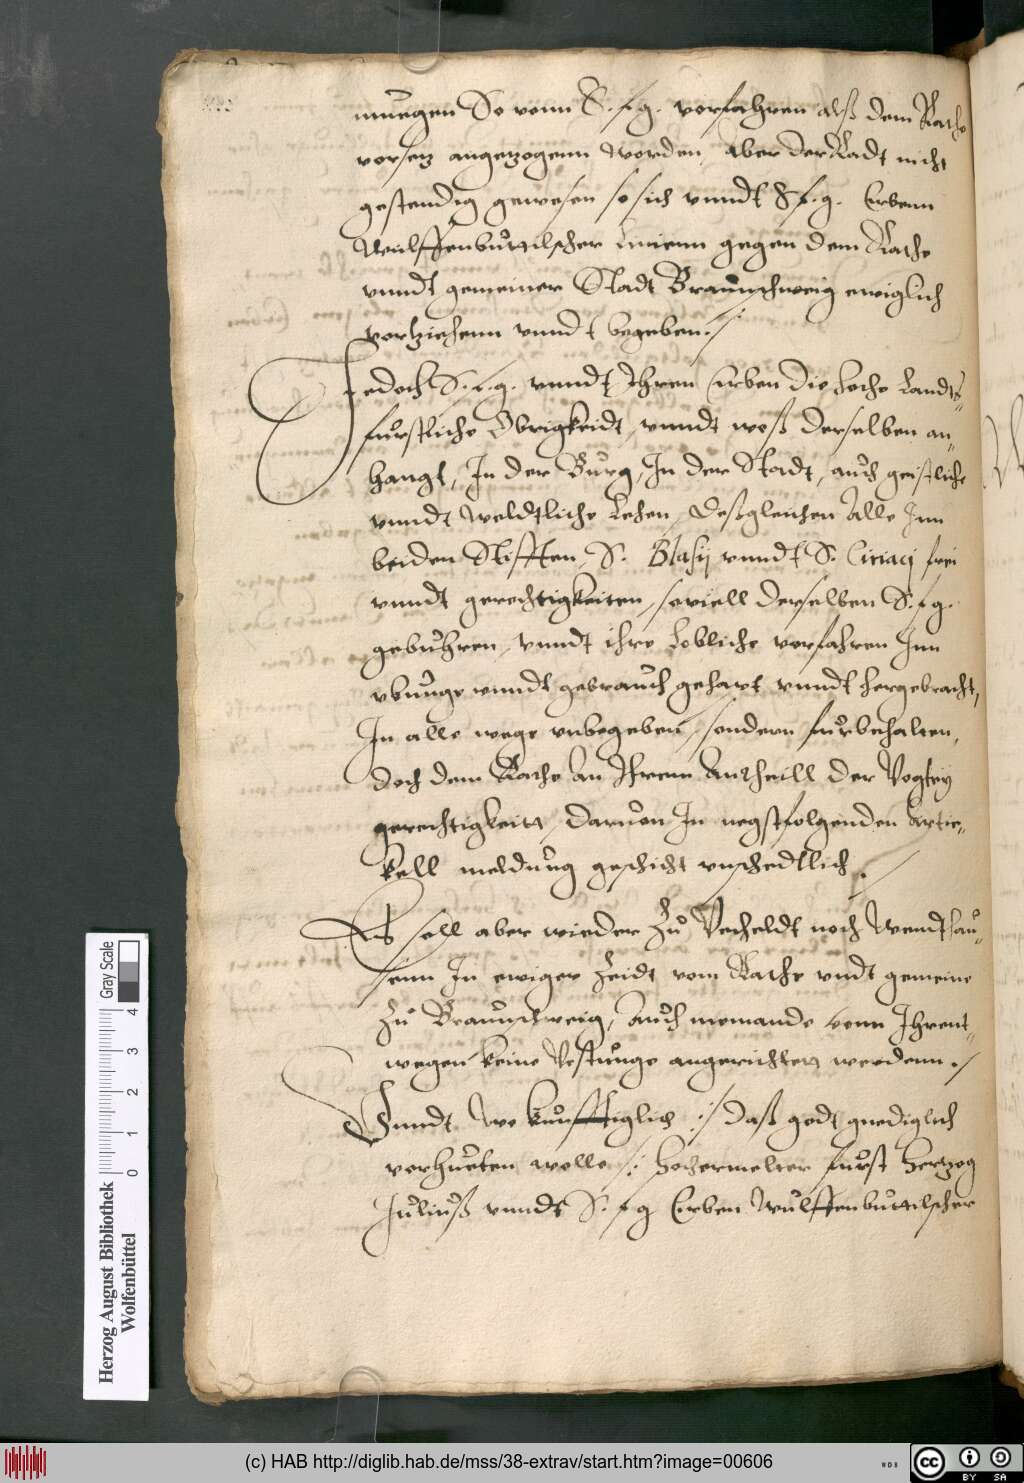 mugen So vonn S. f. g. vorfahren alß dem Rathe
vorsetz angezogenn worden, aber der Radt nicht
gestendig gewesen so sich vnndt S. f. g. Erbenn
Wulffenbuttilscher Linienn gegen dem Rathe
vnndt gemeiner Stadt Braunschweig ewiglich
vorziehenn vnndt begeben./
Jedoch S. f. g. vnndt Ihren Erben die hoche Landts„
furstliche Obrigkeidt, vnndt weß derselben an„
hangt, In der Burg, In der Stadt, auch geistliche
vnndt weldtliche Lehen, Deßgleichen Alle Inn
beiden Stifften, S. Blasij vnndt S. Ciriaci frei
vnndt gerechtigkeiten, soviell derselben S. f. g.
gebuhren, vnndt ihre Lobliche vorfahren Inn
vbunge vnndt gebrauch gehatt vnndt hergebracht,
In alle wege vnbegeben, sondern furbehalten,
doch dem Rathe An Ihrem Antheill der Vogtey
gerechtigkeitt, daruon In negstfolgenden Artic„
kell meldung geschicht vnschedtlich./
Es soll aber wieder zu Vecheldt noch Wendthau„
senn In ewiger Zeidt vom Rathe vndt gemeine
zu Braunschweig, Auch niemande vonn Ihrent„
wegen keine Vestunge angerichtett werdenn./
Vnndt Wo kunfftiglich :/ daß godt gnediglich
vorhueten wolle /: hochermelter furst Hertzog
Juliuß vnndt S. f. g Erben Wulffenbuttilscher
Herzog August Bibliothek
Wolfenbüttel
Gray Scale
0 1 2 3 4
(c) HAB http://diglib.hab.de/mss/38-extrav/start.htm?image=00606
WDB
cc BY SA